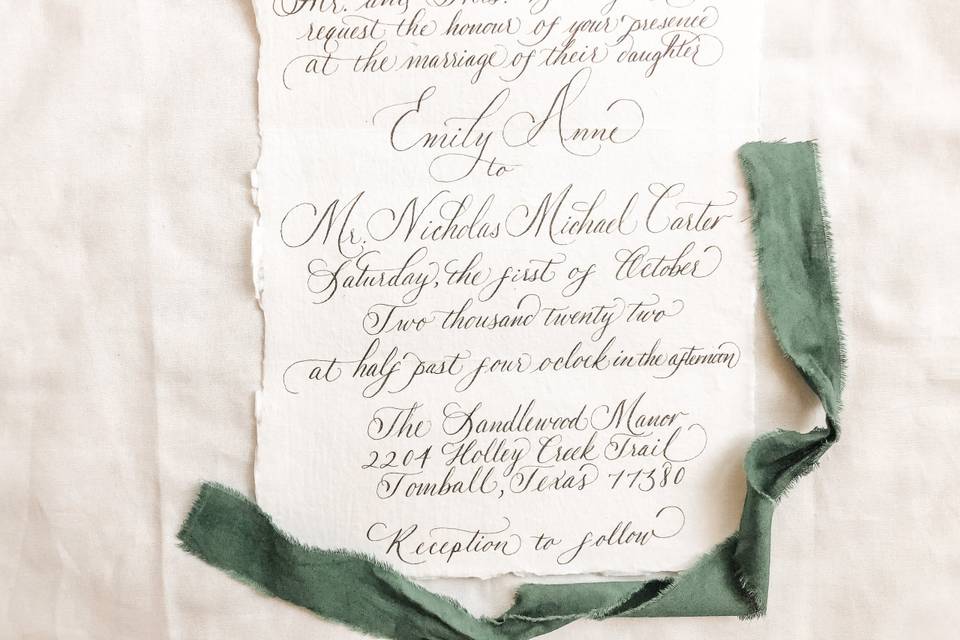 Mr. and Mrs.
request the honour of your presence
at the marriage of their daughter
Emily Anne
to
Mr. Nicholas Michael Carter
Saturday, the first of October
Two thousand twenty two
at half past four oclock in the afternoon
The Sandlewood Manor
2204 Holley Creek Trail
Tomball, Texas 77380
Reception to follow